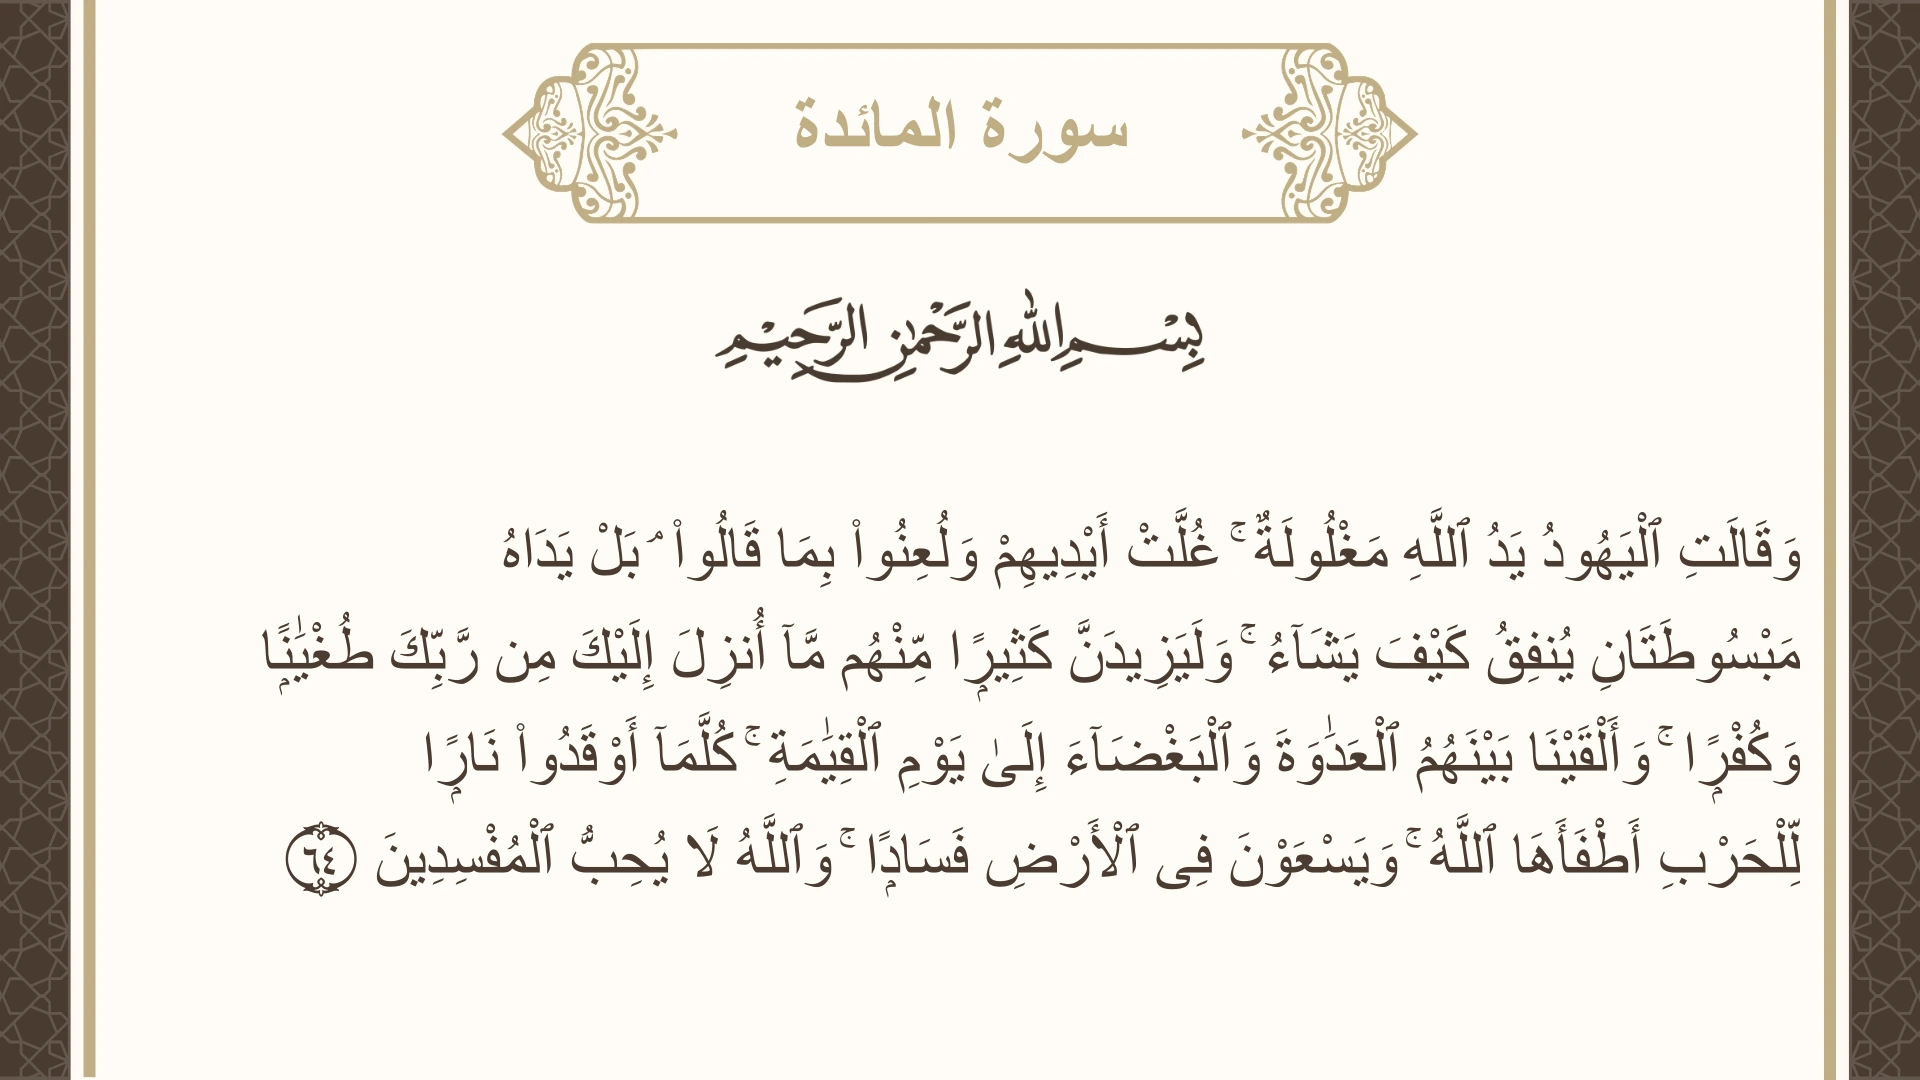 سورة المائدة
بِسْمِ اللهِ الرَّحْمٰنِ الرَّحِيْمِ
وَقَالَتِ ٱلْيَهُودُ يَدُ ٱللَّهِ مَغْلُولَةٌ ۚ غُلَّتْ أَيْدِيهِمْ وَلُعِنُوا۟ بِمَا قَالُوا۟ ۘ بَلْ يَدَاهُ
مَبْسُوطَتَانِ يُنفِقُ كَيْفَ يَشَآءُ ۚ وَلَيَزِيدَنَّ كَثِيرًۭا مِّنْهُم مَّآ أُنزِلَ إِلَيْكَ مِن رَّبِّكَ طُغْيَٰنًۭا
وَكُفْرًۭا ۚ وَأَلْقَيْنَا بَيْنَهُمُ ٱلْعَدَٰوَةَ وَٱلْبَغْضَآءَ إِلَىٰ يَوْمِ ٱلْقِيَٰمَةِ ۚ كُلَّمَآ أَوْقَدُوا۟ نَارًۭا
لِّلْحَرْبِ أَطْفَأَهَا ٱللَّهُ ۚ وَيَسْعَوْنَ فِى ٱلْأَرْضِ فَسَادًۭا ۚ وَٱللَّهُ لَا يُحِبُّ ٱلْمُفْسِدِينَ ٦٤